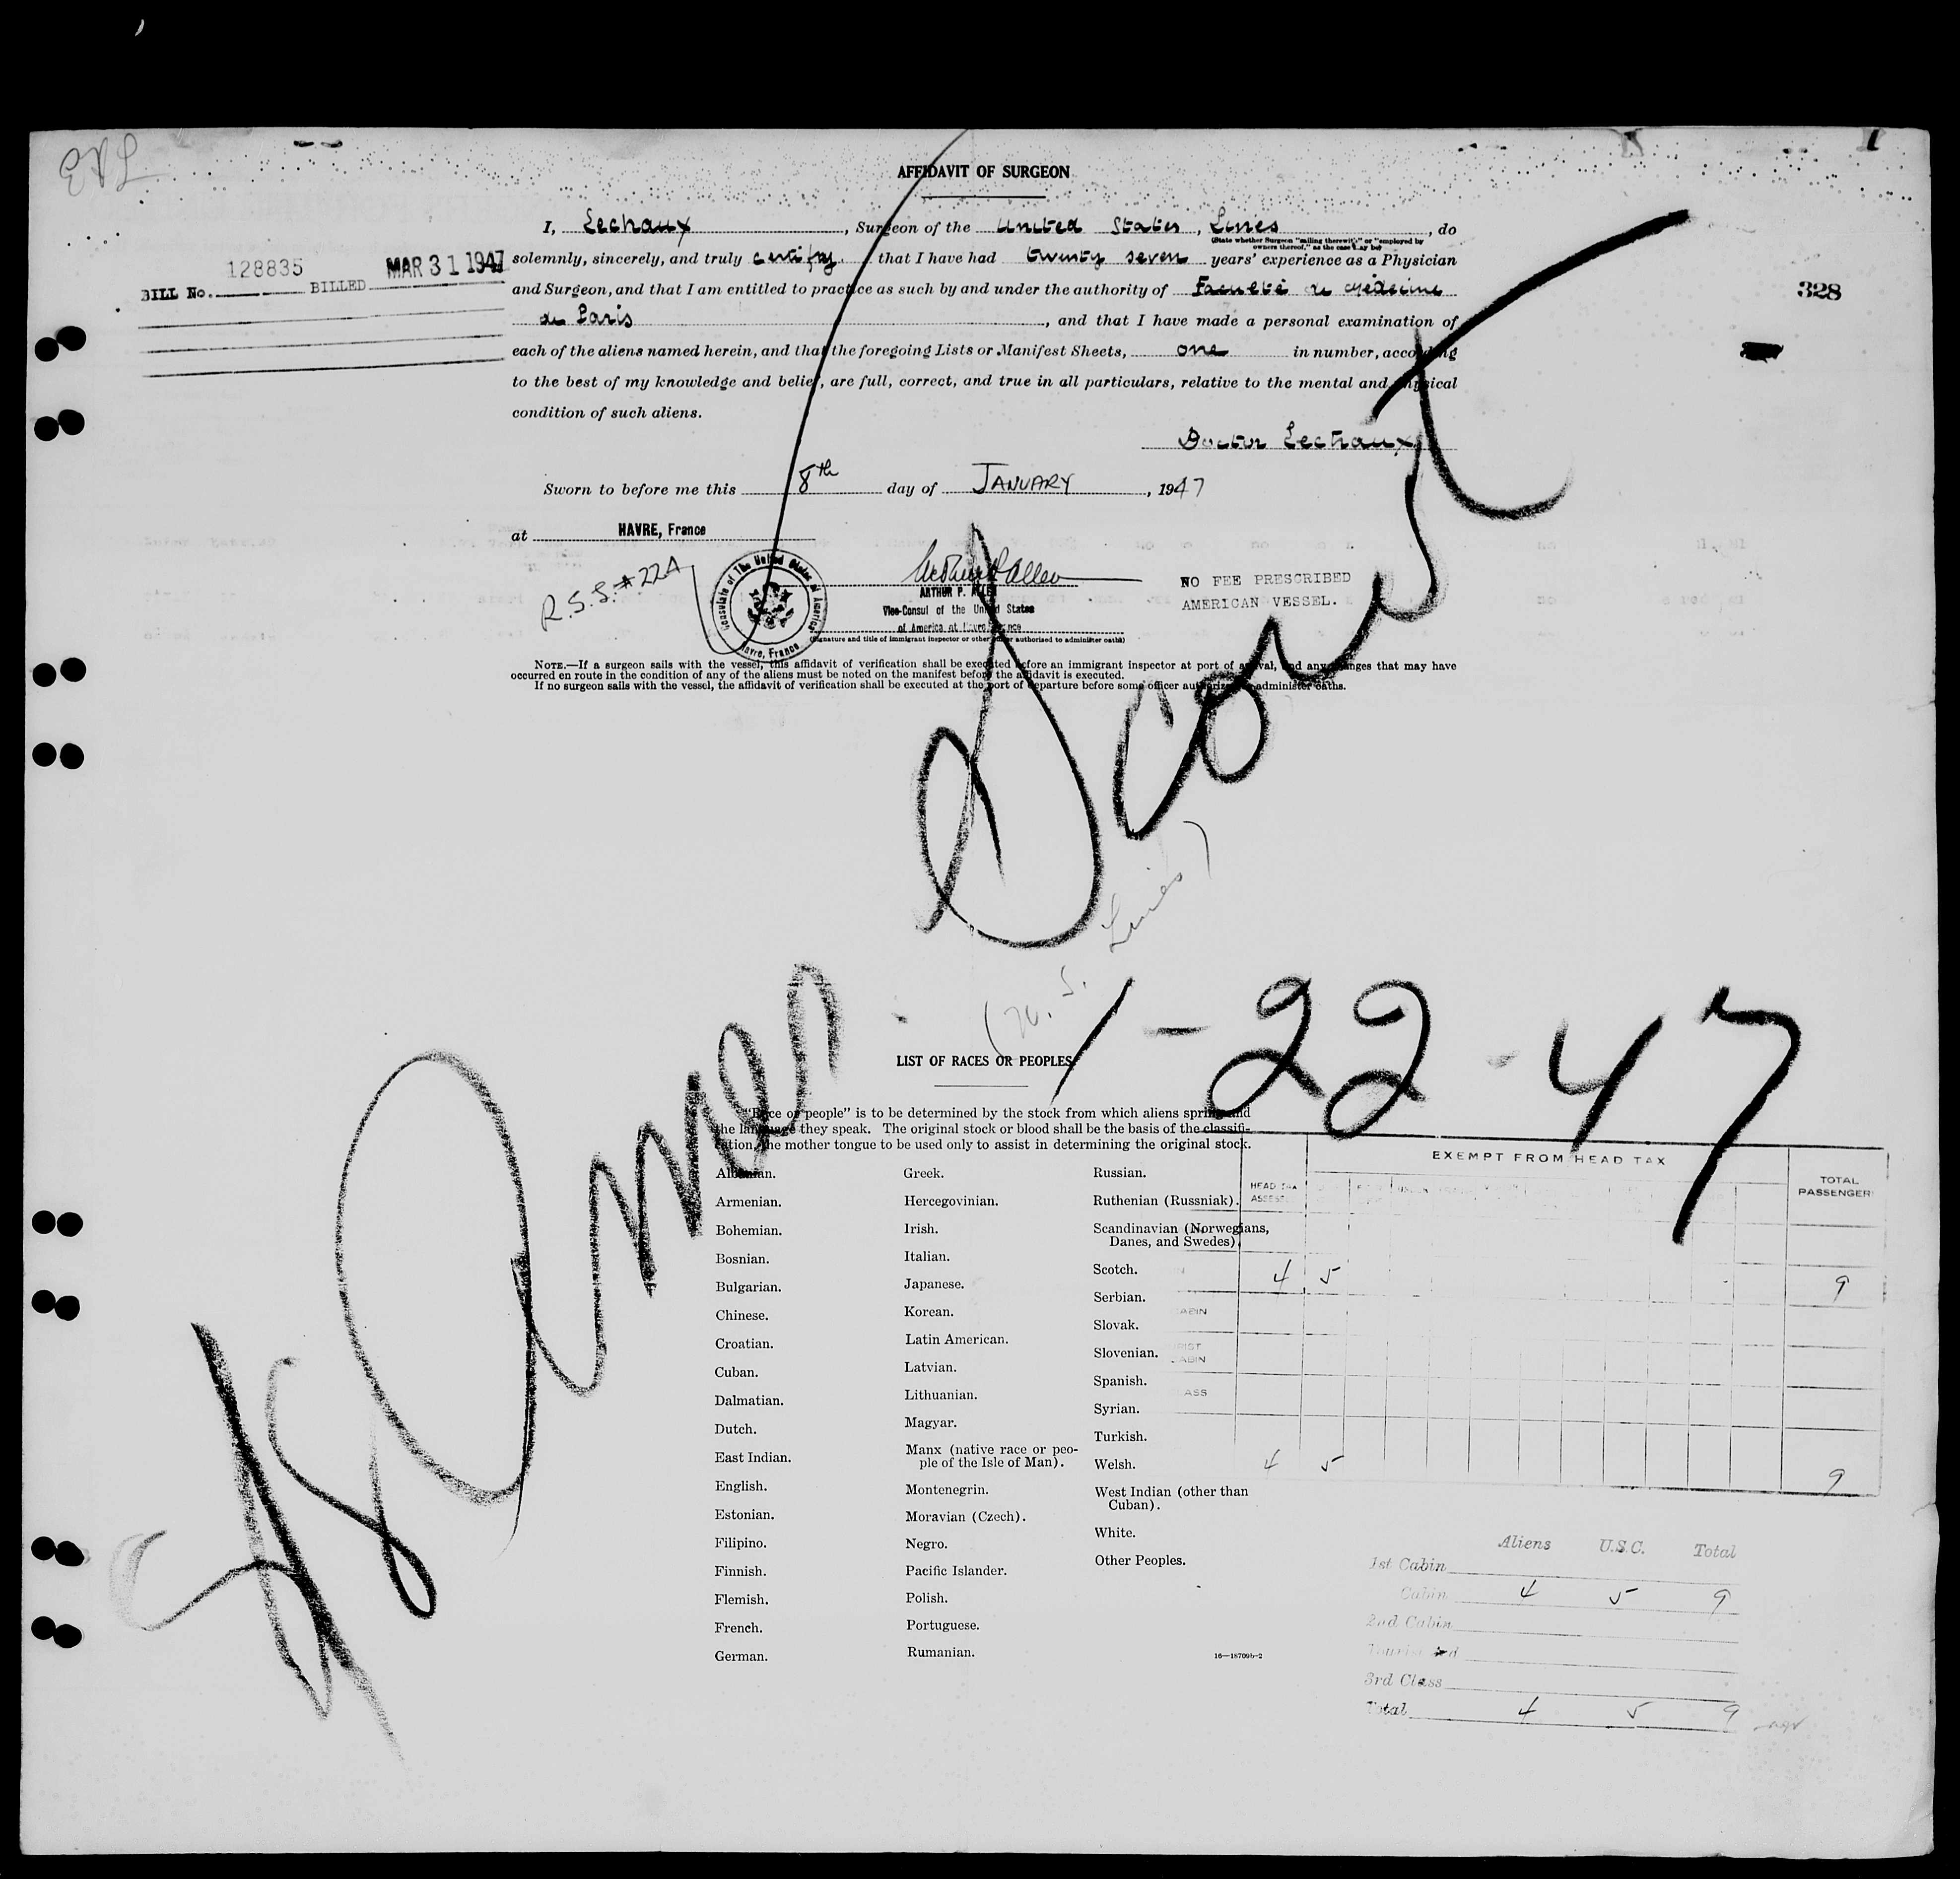 1
AFFIDAVIT OF SURGEON
I, Lechaux, Surgeon of the United States, Lines, do
(State whether Surgeon "sailing therewith" or "employed by
owners thereof," as the case may be)
solemnly, sincerely, and truly certify that I have had twenty seven years' experience as a Physician
and Surgeon, and that I am entitled to practice as such by and under the authority of Faculté de Médecine
de Paris, and that I have made a personal examination of
each of the aliens named herein, and that the foregoing Lists or Manifest Sheets, one in number, according
to the best of my knowledge and belief, are full, correct, and true in all particulars, relative to the mental and physical
condition of such aliens.
BILL No. 128835 BILLED MAR 31 1947
328
Doctor Lechaux
Sworn to before me this 8th day of JANUARY, 1947
at HAVRE, France
R.S.S. #224
Consulate of The United States of America
Havre, France
Arthur P Allen
ARTHUR P. ALLEN
Vice-Consul of the United States
of America at Havre, France
(Signature and title of immigrant inspector or other officer authorized to administer oaths)
NO FEE PRESCRIBED
AMERICAN VESSEL.
NOTE.—If a surgeon sails with the vessel, this affidavit of verification shall be executed before an immigrant inspector at port of arrival, and any changes that may have
occurred en route in the condition of any of the aliens must be noted on the manifest before the affidavit is executed.
If no surgeon sails with the vessel, the affidavit of verification shall be executed at the port of departure before some officer authorized to administer oaths.
SS Amer. Scout
(U.S. Lines)
1-22-47
LIST OF RACES OR PEOPLES
"Race or people" is to be determined by the stock from which aliens spring and
the language they speak. The original stock or blood shall be the basis of the classifi-
cation, the mother tongue to be used only to assist in determining the original stock.
Albanian.
Armenian.
Bohemian.
Bosnian.
Bulgarian.
Chinese.
Croatian.
Cuban.
Dalmatian.
Dutch.
East Indian.
English.
Estonian.
Filipino.
Finnish.
Flemish.
French.
German.
Greek.
Hercegovinian.
Irish.
Italian.
Japanese.
Korean.
Latin American.
Latvian.
Lithuanian.
Magyar.
Manx (native race or peo-
ple of the Isle of Man).
Montenegrin.
Moravian (Czech).
Negro.
Pacific Islander.
Polish.
Portuguese.
Rumanian.
Russian.
Ruthenian (Russniak).
Scandinavian (Norwegians,
Danes, and Swedes).
Scotch.
Serbian.
Slovak.
Slovenian.
Spanish.
Syrian.
Turkish.
Welsh.
West Indian (other than
Cuban).
White.
Other Peoples.
16—18709b-2
EXEMPT FROM HEAD TAX
HEAD TAX
ASSESS.
TOTAL
PASSENGER
4 5 9
4 5 9
Aliens U.S.C. Total
1st Cabin
Cabin 4 5 9
2nd Cabin
Tourist
3rd Class
Total 4 5 9